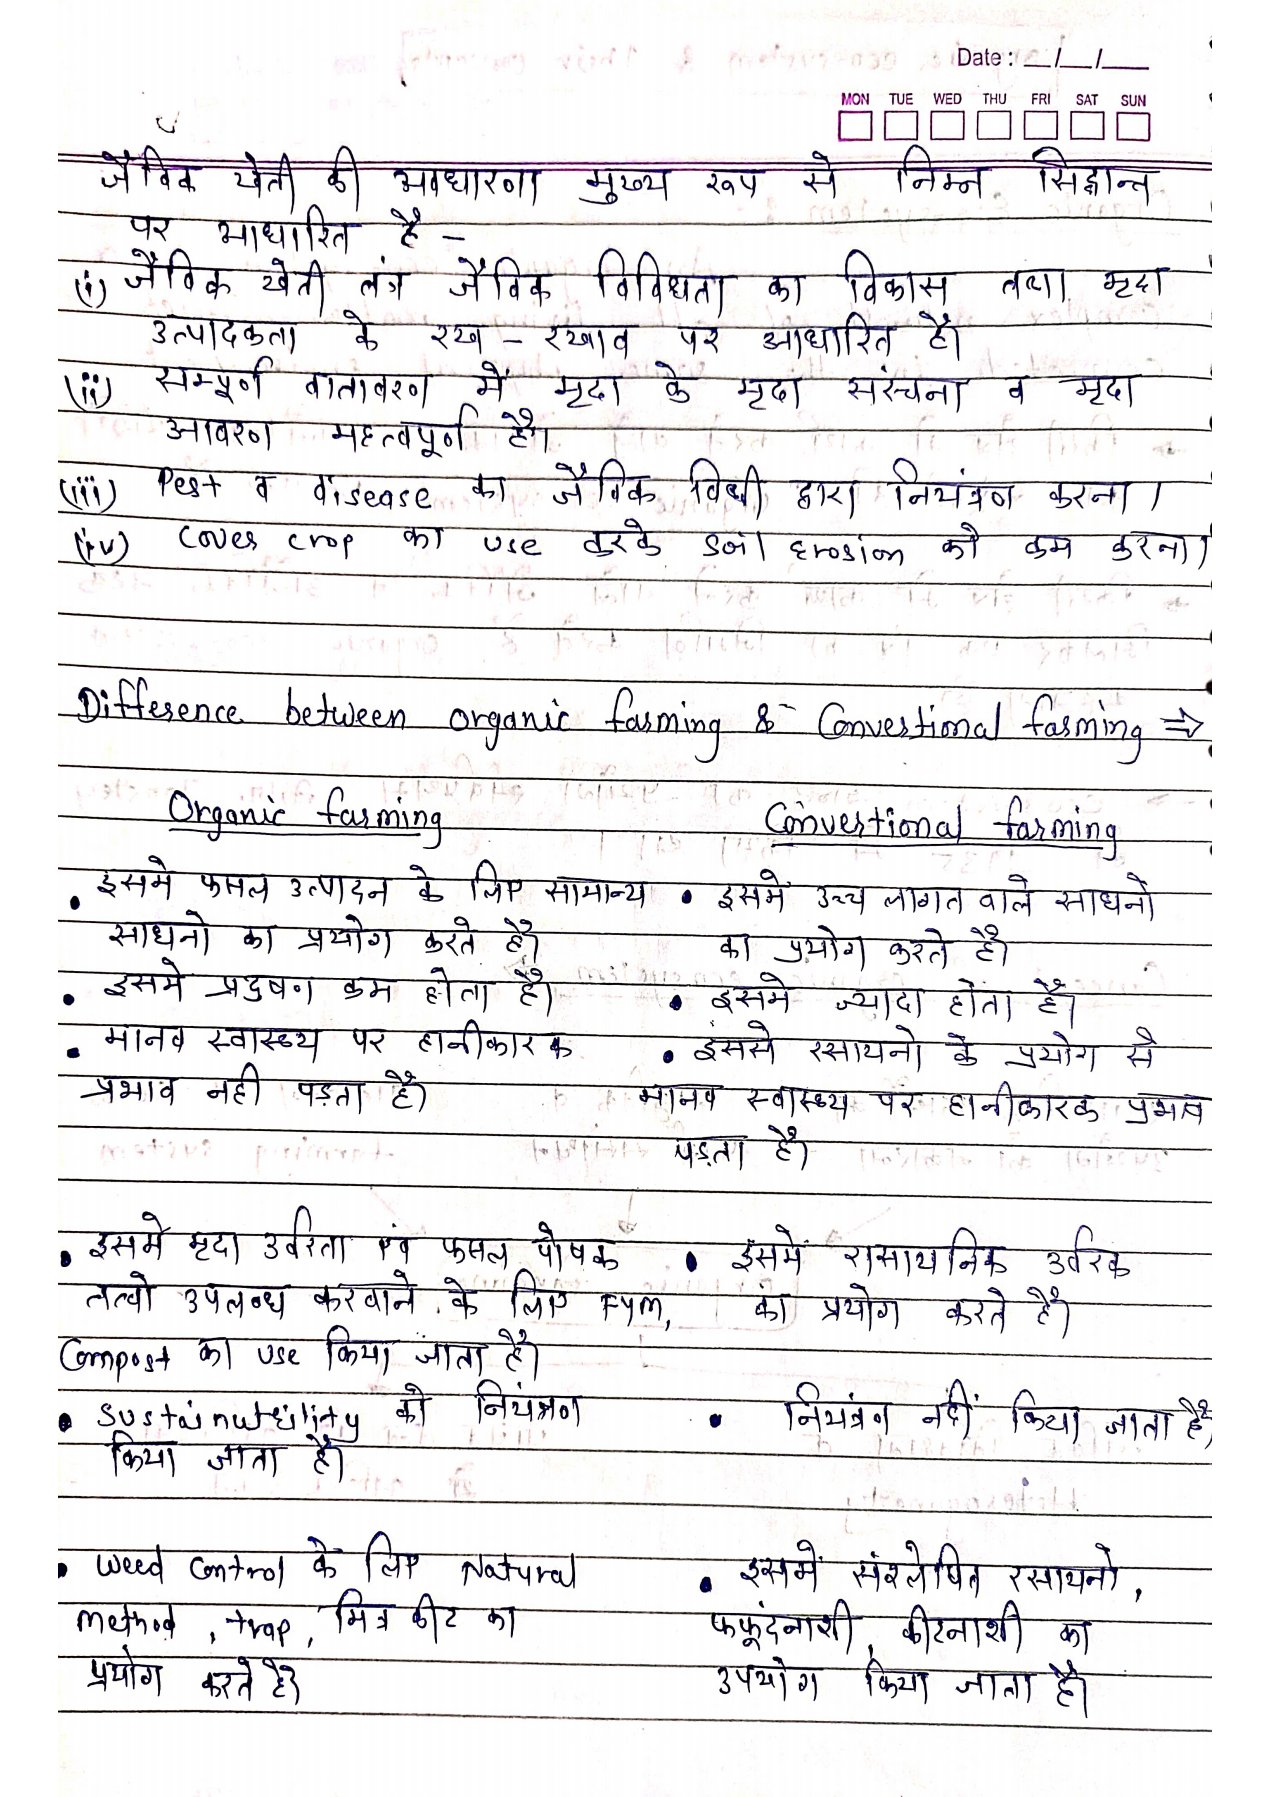 Date : __/__/___
MON TUE WED THU FRI SAT SUN
जैविक खेती की अवधारणा मुख्य रूप से निम्न सिद्धान्त
पर आधारित है –
(i) जैविक खेती तंत्र जैविक विविधता का विकास तथा मृदा
उत्पादकता के रख – रखाव पर आधारित है।
(ii) सम्पूर्ण वातावरण में मृदा के मृदा संरचना व मृदा
आवरण महत्वपूर्ण है।
(iii) Pest व disease का जैविक विधी द्वारा नियंत्रण करना।
(iv) Cover crop का use करके soil Erosion को कम करना।
Difference between organic farming & Convertional farming ⇒
Organic farming
Convertional farming
• इसमे फसल उत्पादन के लिए सामान्य • इसमें उच्च लागत वाले साधनों
साधनो का प्रयोग करते है। का प्रयोग करते है।
• इसमे प्रदुषण कम होता है। • इसमे ज्यादा होता है।
• मानव स्वास्थ्य पर हानीकारक • इससे रसायनो के प्रयोग से
प्रभाव नही पड़ता है। मानव स्वास्थ्य पर हानीकारक प्रभाव
पड़ता है।
• इसमें मृदा उर्वरता एवं फसल पोषक • इसमें रासायनिक उर्वरक
तत्वो उपलब्ध करवाने के लिए Fym, का प्रयोग करते है।
Compost का use किया जाता है।
• Sustainutbility को नियंत्रण • नियंत्रण नहीं किया जाता है,
किया जाता है।
• weed control के लिए Natural • इसमें संश्लेषित रसायनो,
method, trap, मित्र कीट का फफूंदनाशी, कीटनाशी का
प्रयोग करते है। उपयोग किया जाता है।